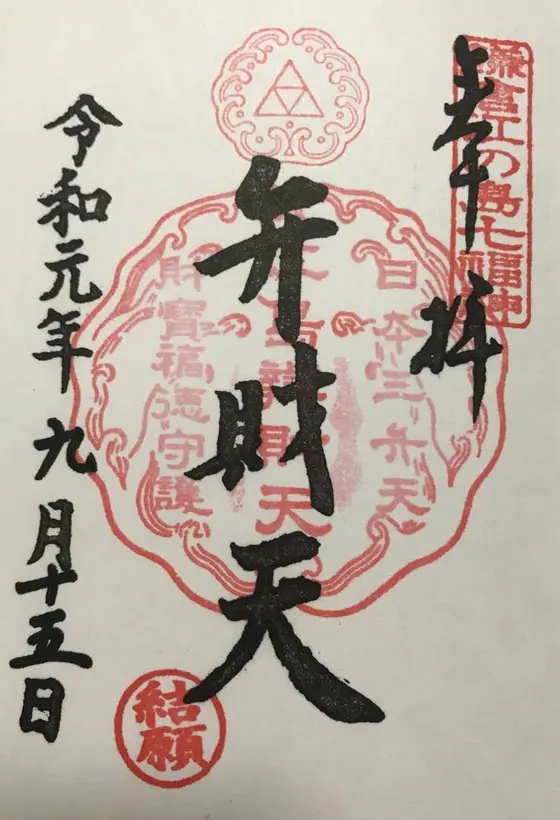 奉拝
鎌倉江の島七福神
日本三弁天
弁財天
江島辨財天
財寶福徳守護
令和元年九月十五日
結願